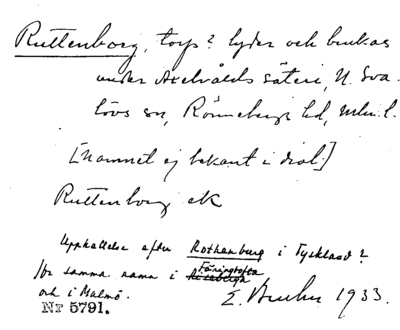 Ruttenborg, torp? lyder och brukas
under Axelvålds säteri, N. Sva-
lövs sn, Rönnebergs hd, Mlm. l.
[Namnet ej bekant i dial.]
Ruttenborg ek
Uppkallelse efter Rothenburg i Tyskland?
Jfr samma namn i Färingtofta
och i Malmö.
E. Bruhn 1933.
Nr 5791.